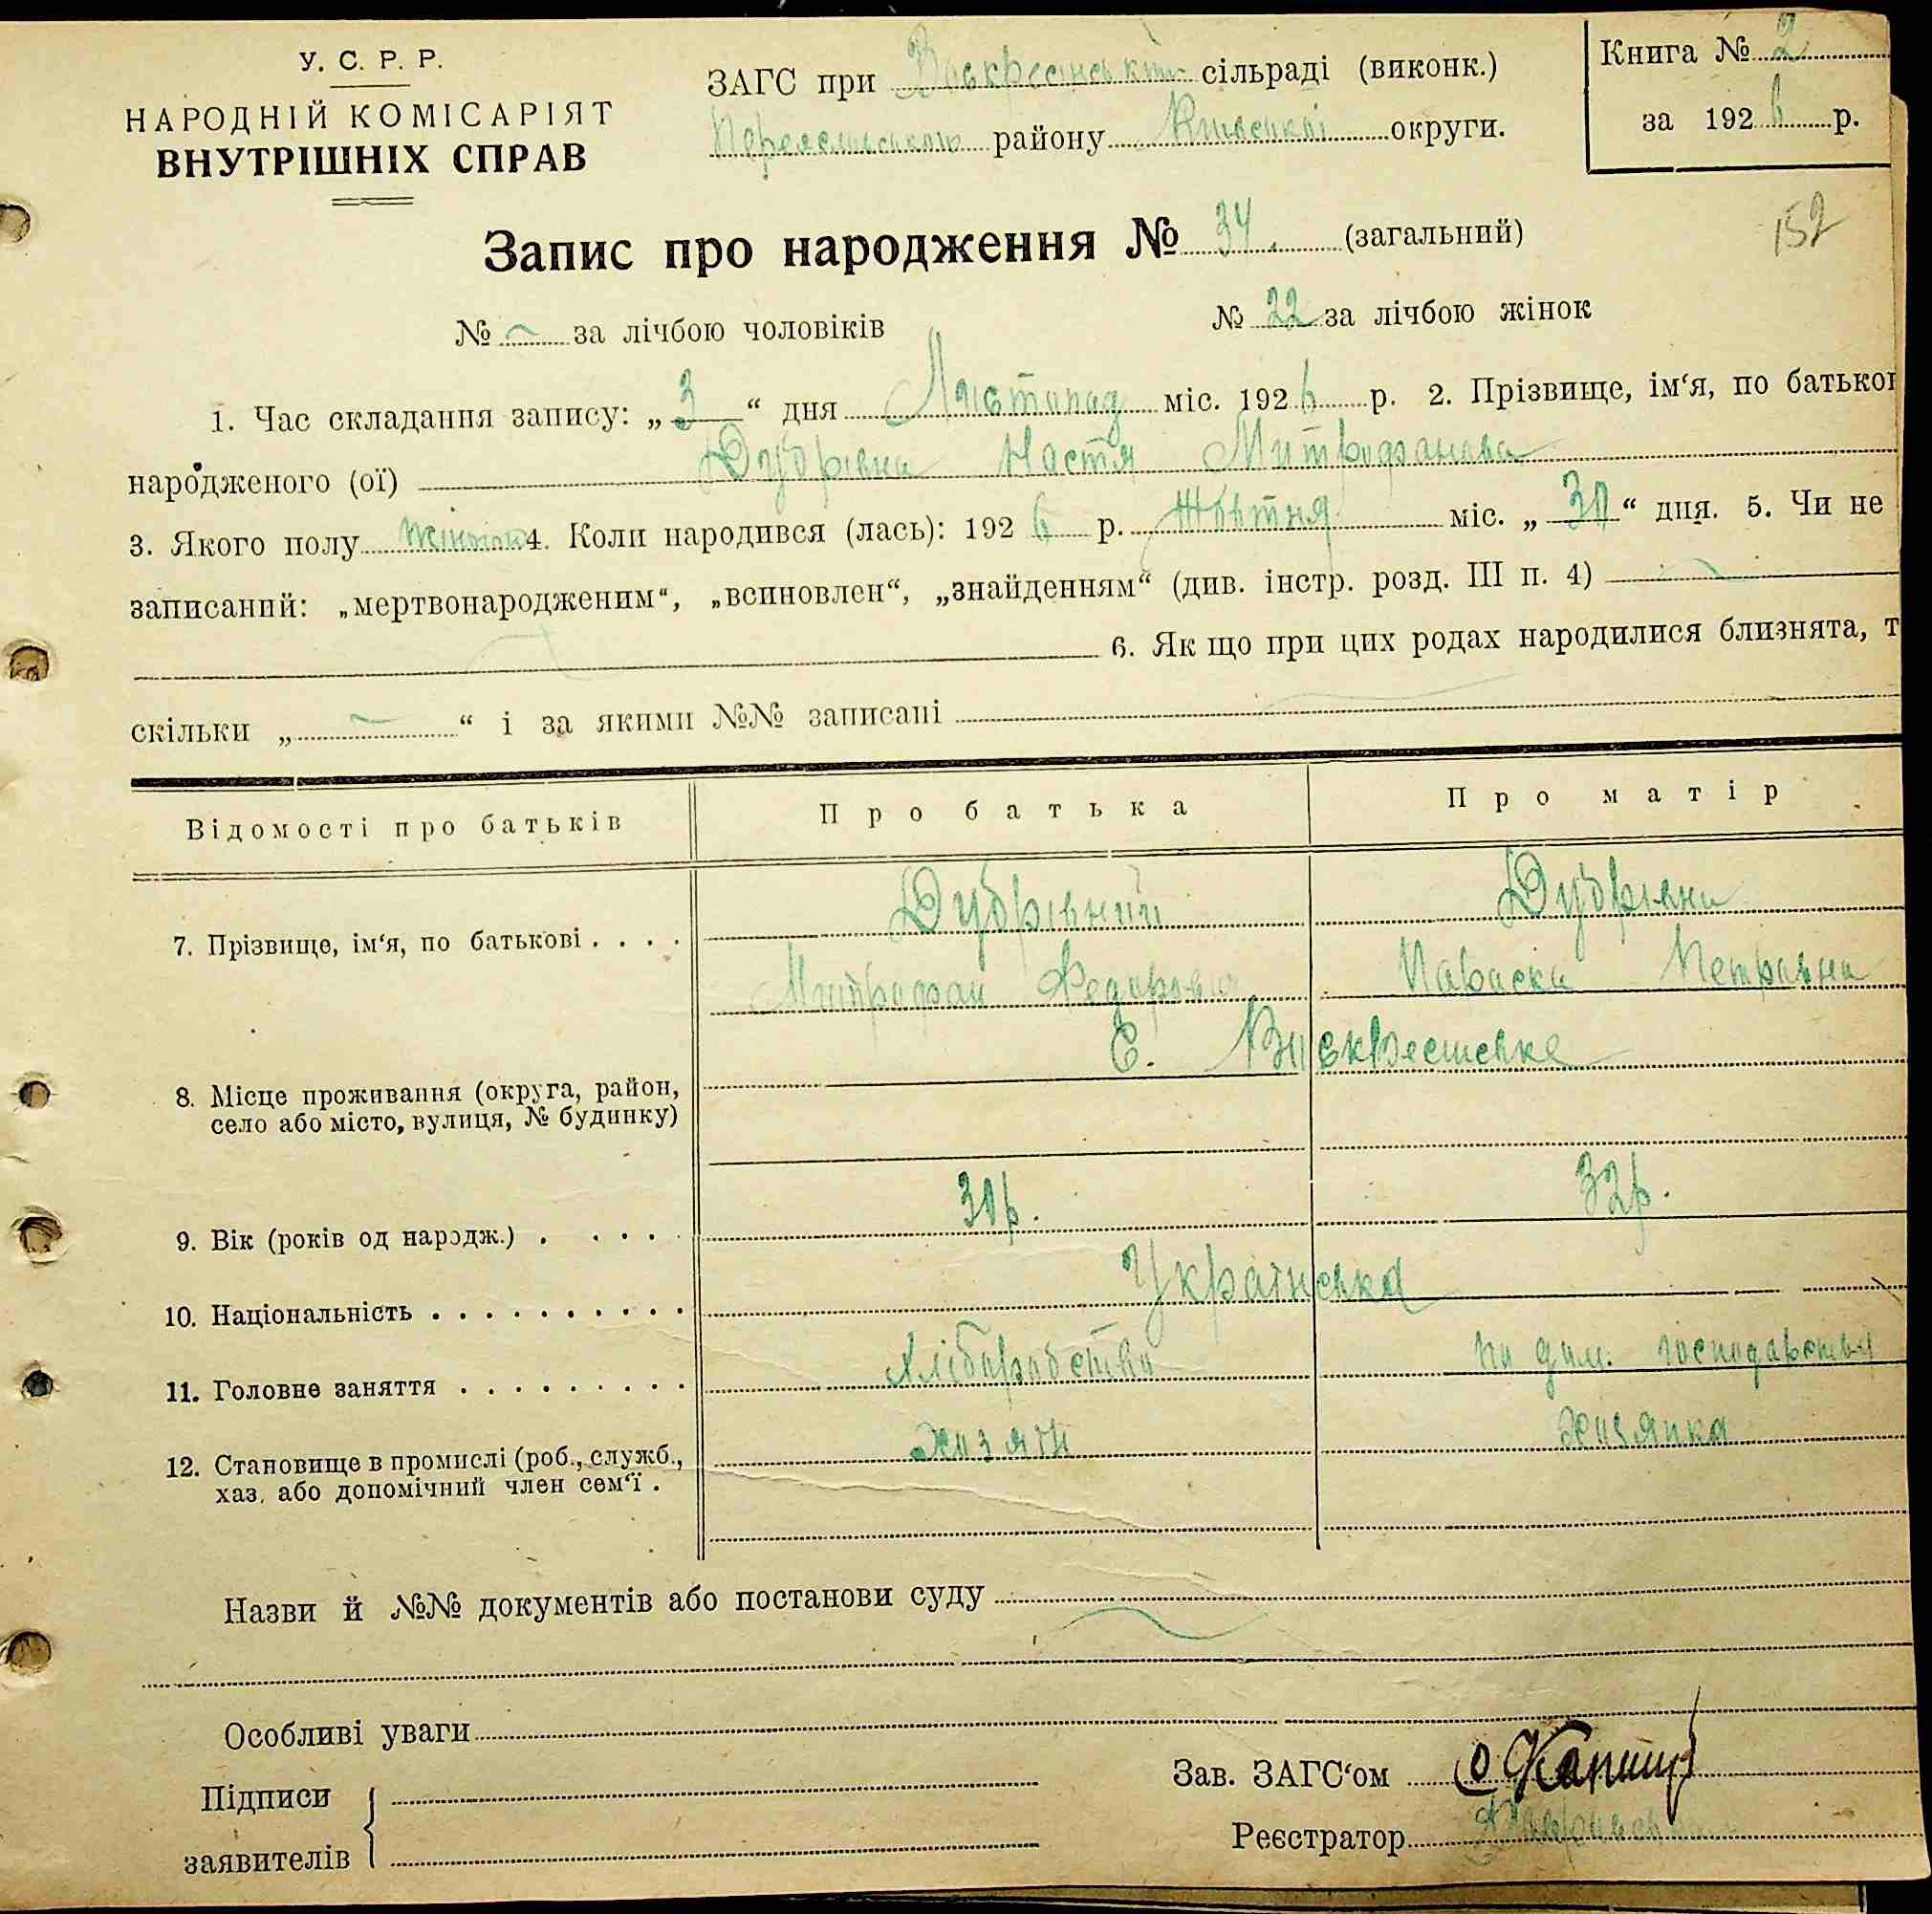 У. С. Р. Р.
НАРОДНІЙ КОМІСАРІЯТ
ВНУТРІШНІХ СПРАВ
ЗАГС при Воскресенській сільраді (виконк.)
Переяславського району Київської округи.
Книга № 2
за 1926 р.
152
Запис про народження № 34. (загальний)
№ за лічбою чоловіків
№ 22 за лічбою жінок
1. Час складання запису: „3“ дня Листопад міс. 1926 р. 2. Прізвище, ім‘я, по батьков
народженого (ої) Дубрівна Настя Митрофанова
3. Якого полу 4. Коли народився (лась): 1926 р. Жовтня міс. „30“ дня. 5. Чи не
записаний: „мертвонародженим“, „всиновлен“, „знайденням“ (див. інстр. розд. III п. 4)
6. Як що при цих родах народилися близнята, т
скільки „ “ і за якими №№ записані
Відомості про батьків
Про батька
Про матір
7. Прізвище, ім‘я, по батькові . . . .
Дубрівний
Дубрівна
Митрофан Федорович
Параска Петравна
С. Воскресенське
8. Місце проживання (округа, район,
село або місто, вулиця, № будинку)
9. Вік (років од народж.) . . . . .
30р.
32р.
10. Національність . . . . . . . . . .
Українська
11. Головне заняття . . . . . . . . .
Хліборобство
по дом. господарству
12. Становище в промислі (роб., служб.,
хаз. або допомічний член сем‘ї .
Хозяїн
Хозяпка
Назви й №№ документів або постанови суду
Особливі уваги
Підписи
заявителів
Зав. ЗАГС‘ом
Реєстратор